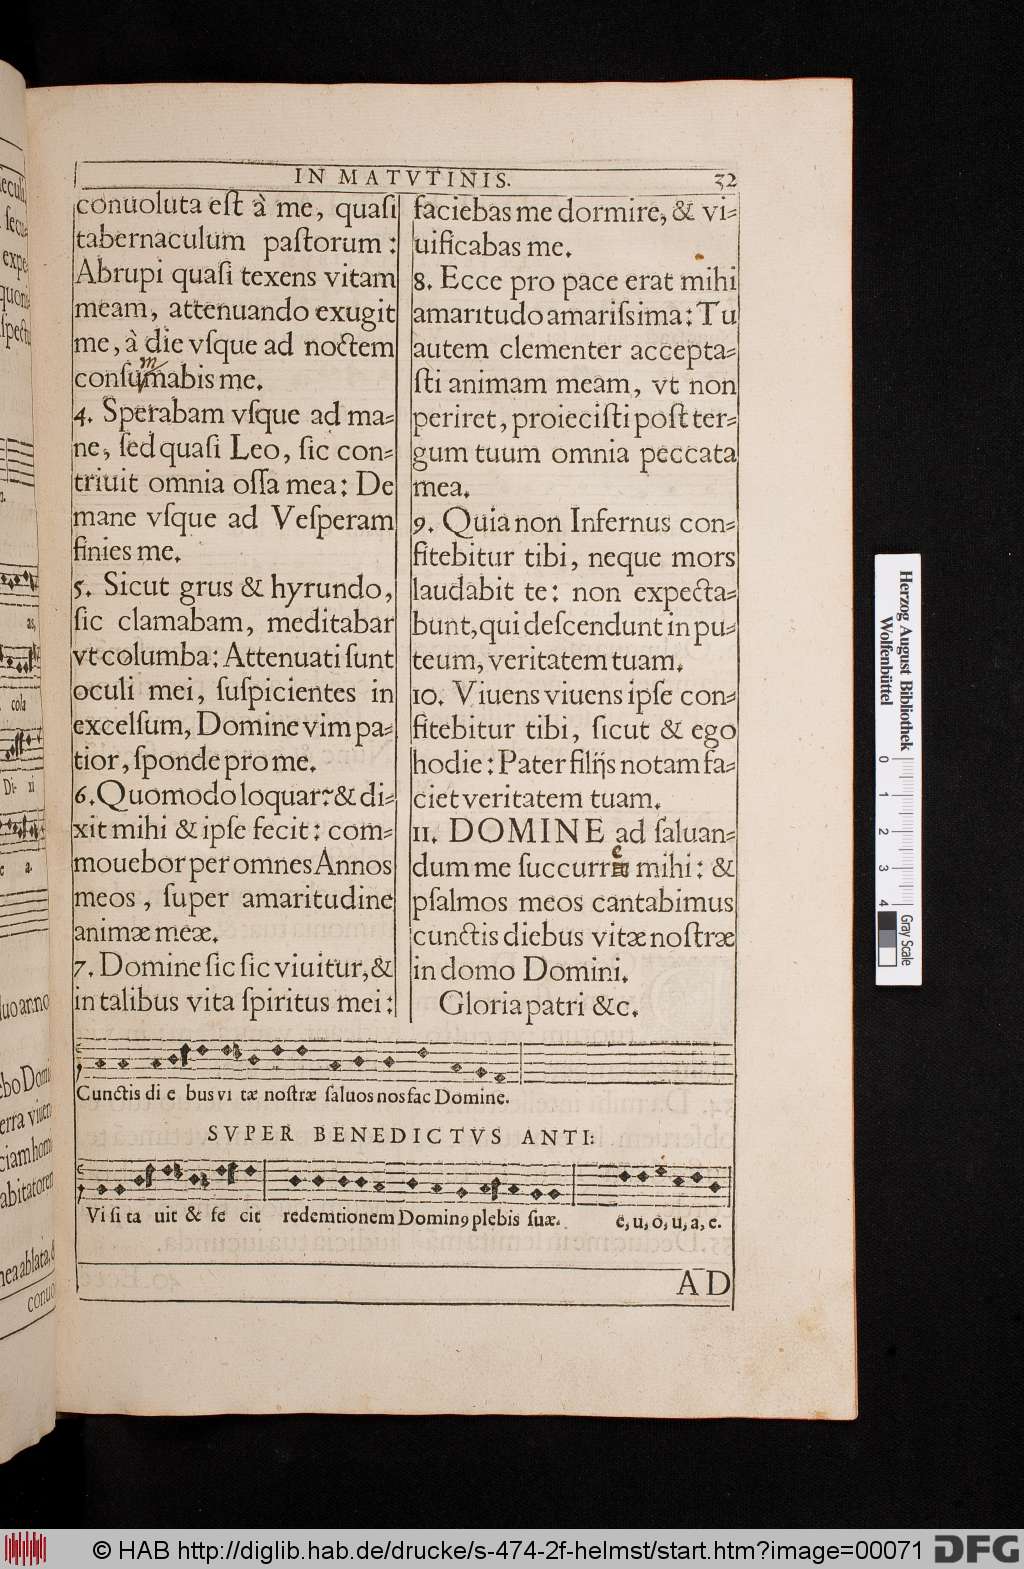 IN MATVTINIS. 32
conuoluta eſt à me, quaſi
tabernaculum paſtorum:
Abrupi quaſi texens vitam
meam, attenuando exugit
me, à die vſque ad noctem
m
conſumabis me.
4. Sperabam vſque ad ma=
ne, ſed quaſi Leo, ſic con=
triuit omnia oſſa mea: De
mane vſque ad Veſperam
finies me.
5. Sicut grus & hyrundo,
ſic clamabam, meditabar
vt columba: Attenuati ſunt
oculi mei, ſuſpicientes in
excelſum, Domine vim pa=
tior, ſponde pro me.
6. Quomodo loquar? & di=
xit mihi & ipſe fecit: com=
mouebor per omnes Annos
meos, ſuper amaritudine
animæ meæ.
7. Domine ſic ſic viuitur, &
in talibus vita ſpiritus mei:
faciebas me dormire, & vi=
uificabas me.
8. Ecce pro pace erat mihi
amaritudo amariſsima: Tu
autem clementer accepta=
ſti animam meam, vt non
periret, proieciſti poſt ter=
gum tuum omnia peccata
mea.
9. Quia non Infernus con=
fitebitur tibi, neque mors
laudabit te: non expecta=
bunt, qui deſcendunt in pu=
teum, veritatem tuam.
10. Viuens viuens ipſe con=
fitebitur tibi, ſicut & ego
hodie: Pater filijs notam fa=
ciet veritatem tuam.
11. DOMINE ad ſaluan=
e
dum me ſuccurr mihi: &
pſalmos meos cantabimus
cunctis diebus vitæ noſtræ
in domo Domini.
Gloria patri &c.
Cunctis di e bus vi tæ noſtræ ſaluos nos fac Domine.
SVPER BENEDICTVS ANTI:
Vi ſi ta uit & fe cit redemtionem Dominꝰ plebis ſuæ. e, u, o, u, a, e.
AD
Herzog August Bibliothek
Wolfenbüttel
0 1 2 3 4
Gray Scale
© HAB http://diglib.hab.de/drucke/s-474-2f-helmst/start.htm?image=00071
DFG